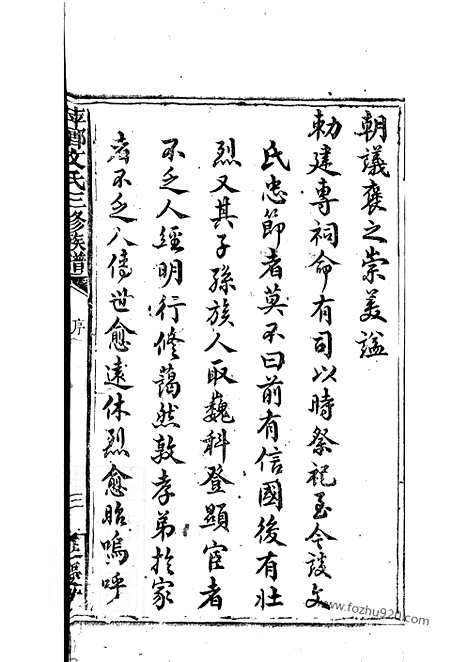 朝議褒之崇美謚
勅建專祠命有司以時祭祀至今談文
氏忠節者莫不曰前有信國後有壯
烈又其子孫族人取巍科登顯宦者
不乏人經明行修藹然敦孝弟於家
者不乏人傳世愈遠休烈愈昭嗚呼
萍鄉文氏三修族譜
序
三
www.fozhu920.com